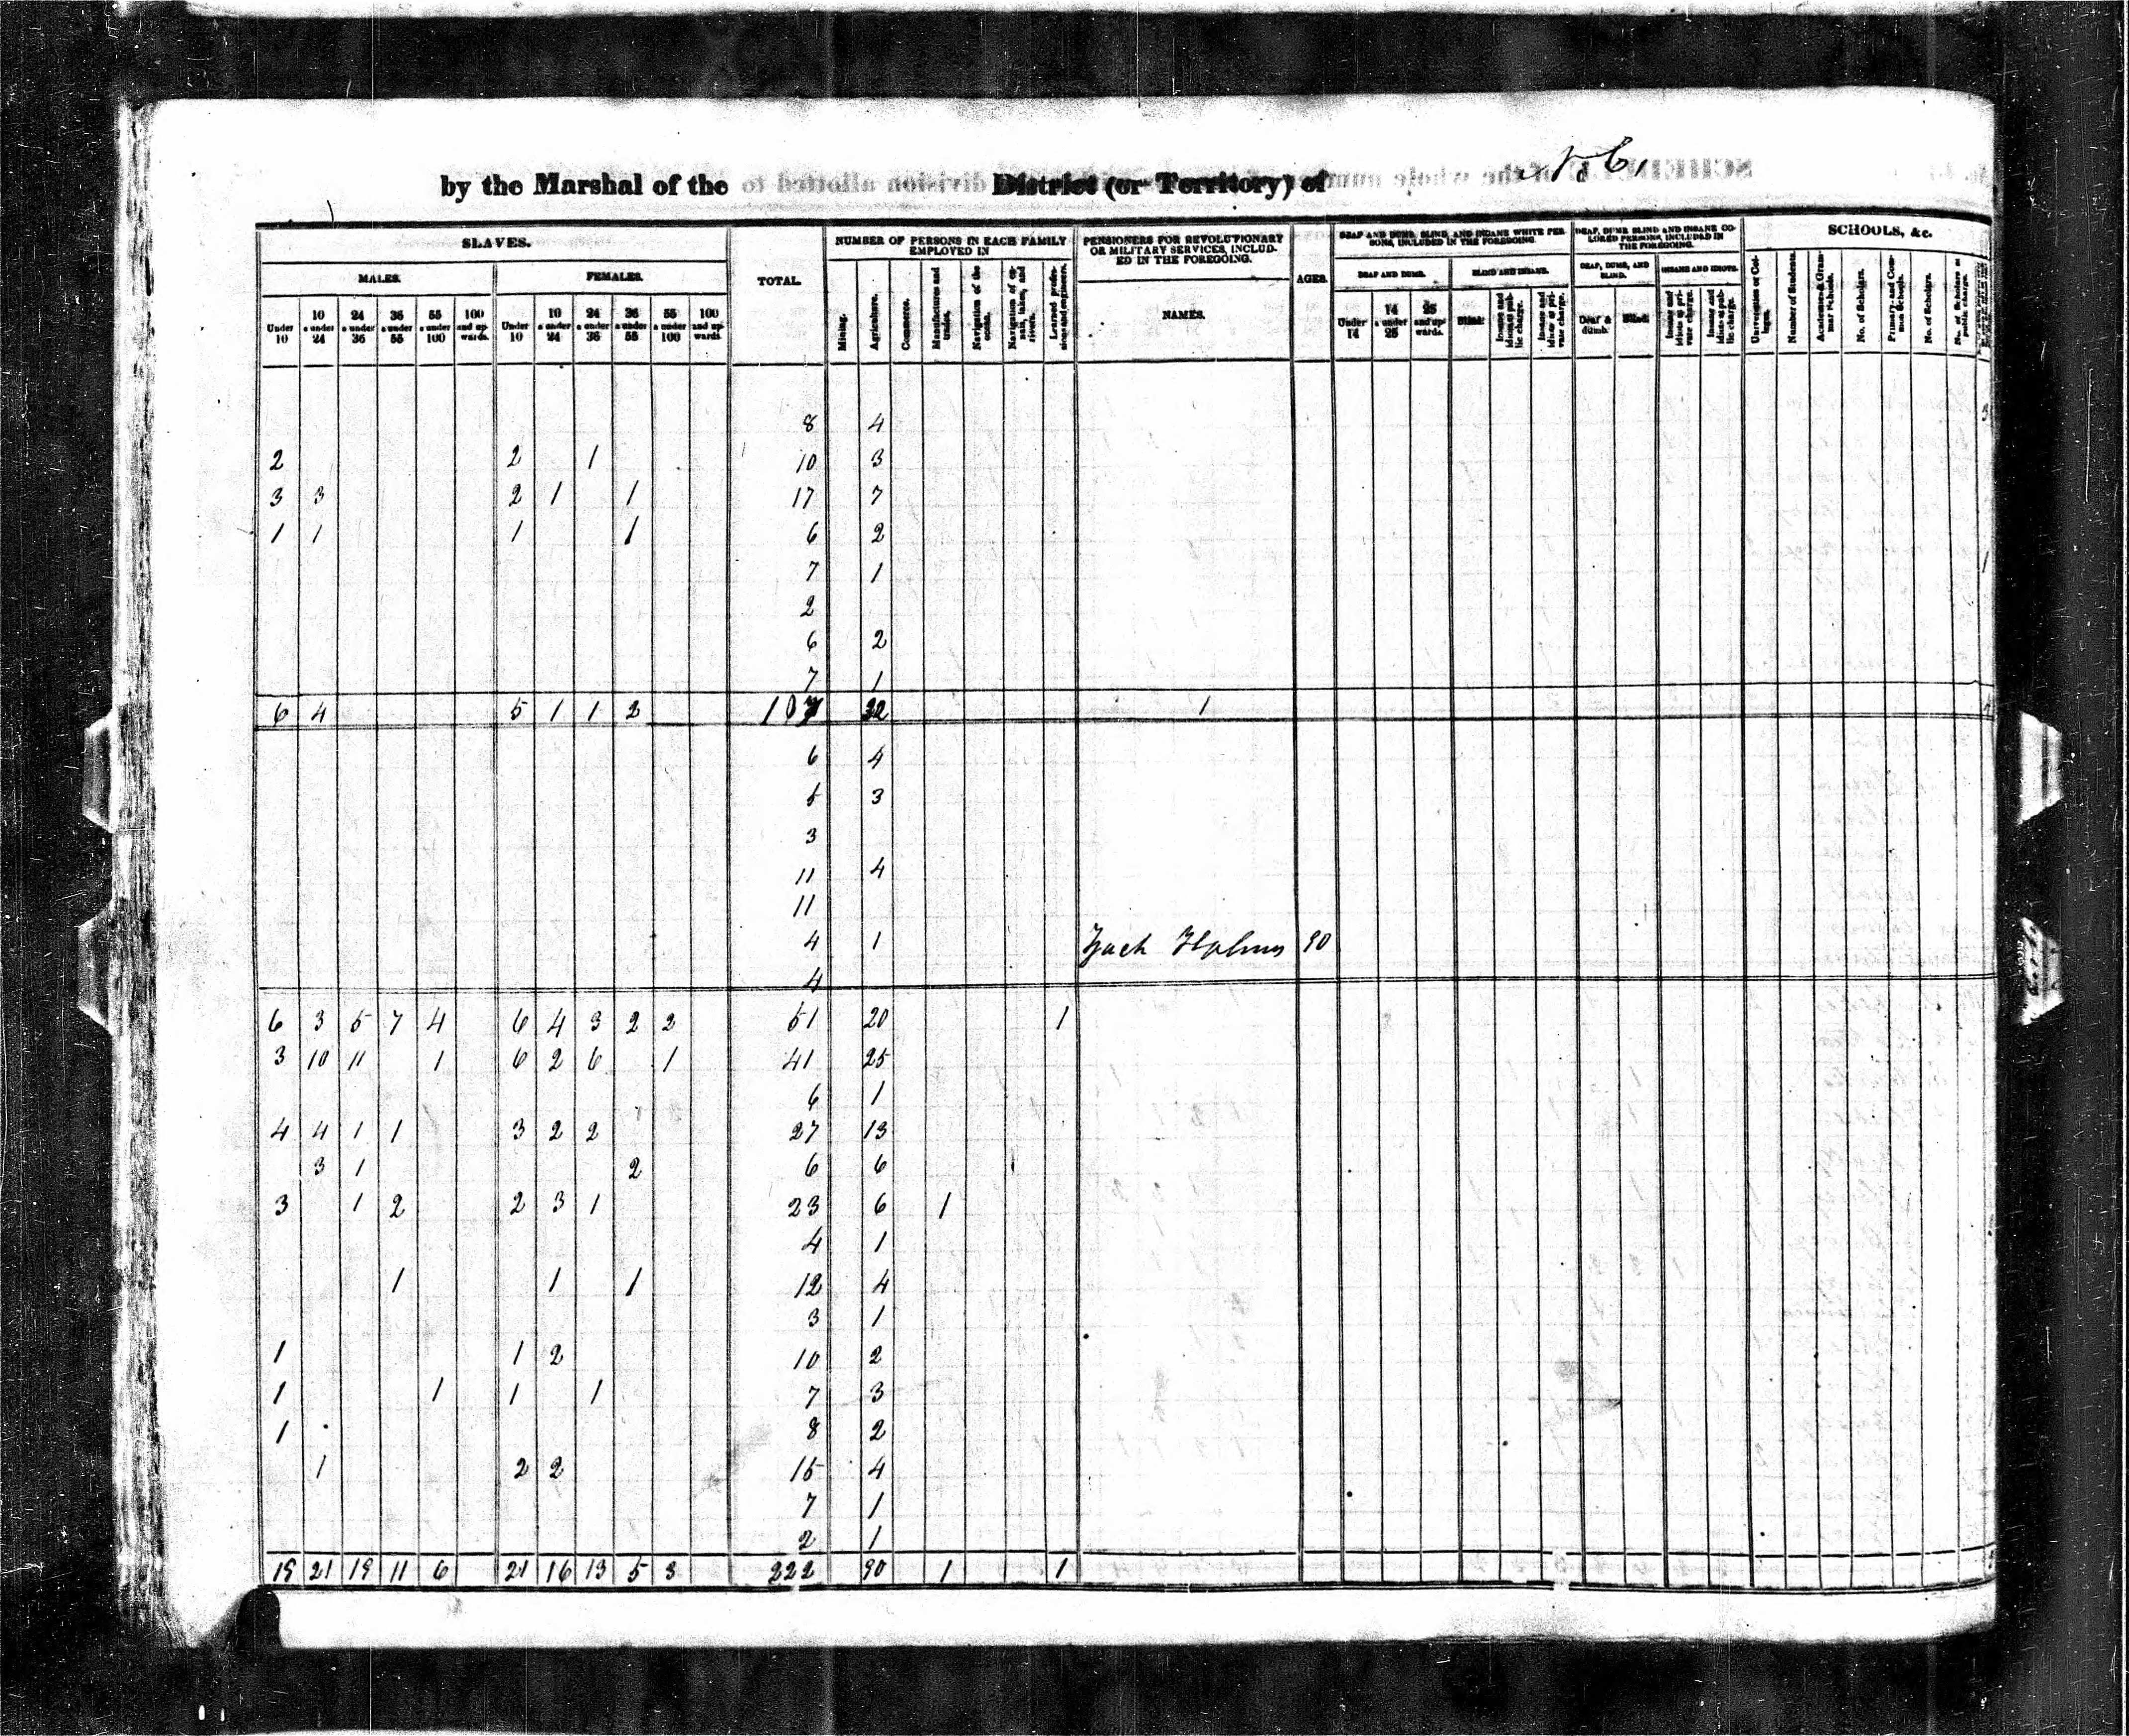 N C,
by the Marshal of the District (or Territory) of
SLAVES.
MALES.
FEMALES.
Under 10
10 & under 24
24 & under 36
36 & under 55
55 & under 100
100 and upwards.
Under 10
10 & under 24
24 & under 36
36 & under 55
55 & under 100
100 and upwards.
TOTAL.
NUMBER OF PERSONS IN EACH FAMILY EMPLOYED IN
Mining.
Agriculture.
Commerce.
Manufactures and trades.
Navigation of the ocean.
Navigation of canals, lakes, and rivers.
Learned professions and engineers.
PENSIONERS FOR REVOLUTIONARY OR MILITARY SERVICES, INCLUDED IN THE FOREGOING.
NAMES.
AGES.
DEAF AND DUMB, BLIND, AND INSANE WHITE PERSONS, INCLUDED IN THE FOREGOING.
DEAF AND DUMB.
Under 14
14 & under 25
25 and upwards.
BLIND AND INSANE.
Blind.
Insane and idiots at public charge.
Insane and idiots at private charge.
DEAF, DUMB, BLIND AND INSANE COLORED PERSONS, INCLUDED IN THE FOREGOING.
DEAF, DUMB, AND BLIND.
Deaf & dumb.
Blind.
INSANE AND IDIOTS.
Insane and idiots at private charge.
Insane and idiots at public charge.
SCHOOLS, &c.
Universities or Colleges.
Number of Students.
Academies & Grammar Schools.
No. of Scholars.
Primary and Common Schools.
No. of Scholars.
No. of Scholars at public charge.
8 4 3
2 2 1 10 3
3 3 2 1 1 17 7
1 1 1 1 6 2
7 1 1
2
6 2
7 1
6 4 5 1 1 2 107 32 1
6 4
5 3
3
11 4
11
4 1 Zach Holmes 90
4
6 3 5 7 4 6 4 3 2 2 51 20 1
3 10 11 1 6 2 6 1 41 25
6 1
4 4 1 1 3 2 2 27 13
3 1 2 6 6
3 1 2 2 3 1 23 6 1
4 1
1 1 1 12 4
3 1
1 1 2 10 2
1 1 1 1 7 3
1 8 2
1 2 2 15 4
7 1
2 1
19 21 19 11 6 21 16 13 5 3 222 90 1 1